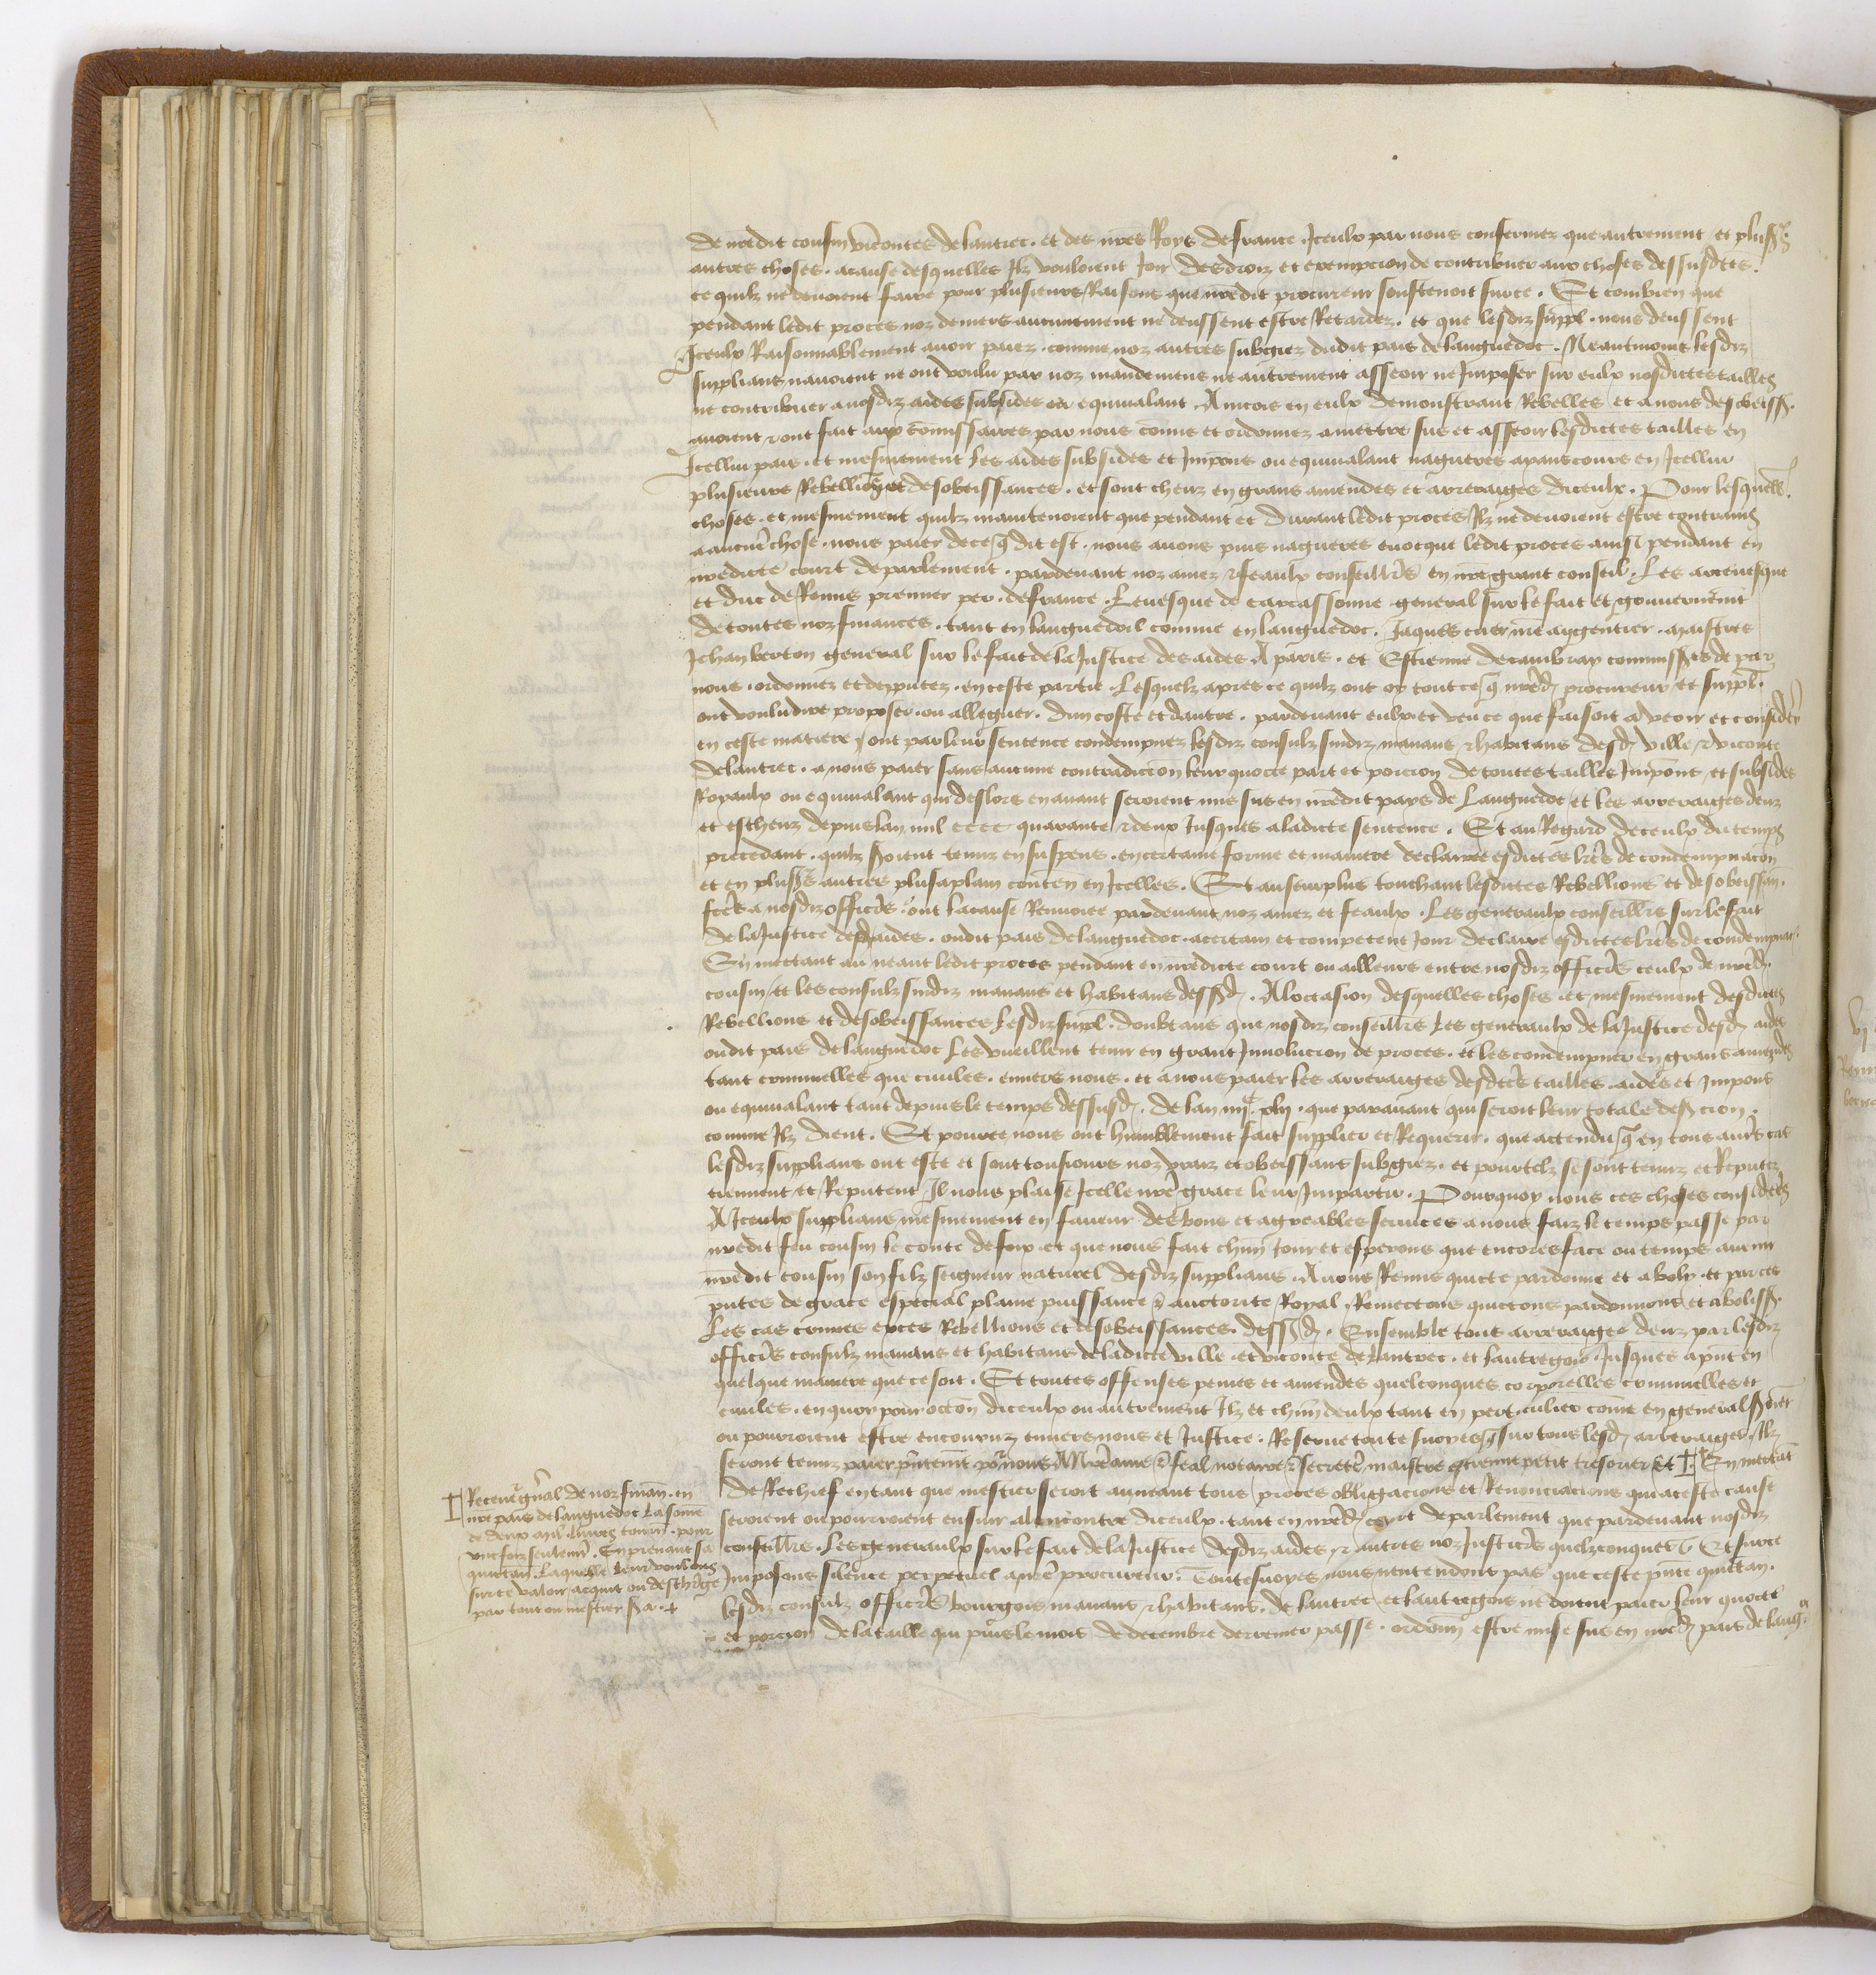 de nredit cousin vicontes de lautrec . et des nres Roys de france . Iceulx par nous confermez que autrement et pluss
autres choses . a cause desquelles Ilz vouloient Joir desdroiz et exempcion de contribuer aux choses dessusdctes .
ce quilz ne devoient faire pour plusieurs Raisons que nredit procureur soustenoit sur ce . Et combien que
pendant ledit proces noz deniers aucunement ne deussent estre Retardez . et que lesdiz suppl . nous deussent
Iceulx Raisonnablement avoir paiez . comme noz autres subgiez dudit pais de languedoc . Neantmoins lesdiz
supplians navoient ne ont voulu par noz mandemens ne autrement asseoir ne Imposer sur eulx nosdictes tailles
ne contribuer a nosdiz aides subsides ou equivalant Aincois en eulx demonstrant Rebelles et a nous desobeiss .
avoient & ont fait aux commissaires par nous commis et ordonnez a mettre sus et asseoir lesdictes tailles en
Icellui pais . et mesmement les aides subsides et Impons ou equivalant nagueres aians cours en Icellui
plusieurs Rebellions et desobeissances . et sont cheuz en grans amendes et arreraiges diceulx . Pour lesquell
choses . et mesmement quilz maintenoient que pendant et durant ledit proces Ilz ne devoient estre contrains
a aucune chose . nous paier de ce q dit est . nous avons puis nagueres evocque ledit proces ainsi pendant en
nredicte court de parlement . pardevant noz amez & feaulx conseillrs en nre grant conseil . Les arcevesque
et duc de Reims premier per . de france . Levesque de carcassonne general sur le fait et gouvernemt
de toutes noz finances . tant en languedoil comme en languedoc . Jaques cuer nre argentier . maistres
Jehan berton general sur le fait de la Justice des aides A paris . et Estienne de cambray commisss de par
nous . ordonnez et depputez . en ceste partie . Lesquelz apres ce quilz ont oy tout ce q nred procureur et suppl .
ont voulu dire proposer . ou alleguer . dun coste et dautre . pardevant eulx et veu ce que faisoit a veoir et considerer
en ceste matiere / ont par leur sentence condempnez lesdiz consulz sindiz manans & habitans desd ville & viconte
de lautrec . a nous paier sans aucune contradiccion leur quocte part et porcion de toutes tailles Impons et subsides
Royaulx ou equivalant qui deslors en avant seroient mis sus en nredit pays de Languedoc et les arreraiges deuz
et escheuz depuis lan mil cccc quarante & deux Jusques a ladicte sentence . Et au Regard de ceulx du temps
precedant . quilz soient tenuz en suspens . en certaine forme et maniere declairee esdictes lres de condempnacion
et en pluss autres plus a plain conten en Icelles . Et au seurplus touchant lesdictes Rebellions et desobeissan .
fctes a nosdiz officrs . ont la cause Renvoiee pardevant noz amez et feaulx . Les generaulx conseillrs sur le fait
de la Justice desd aides . oudit pais de languedoc . a certain et competent Jour declaire esdictes lres de condempnac .
En mettant au neant ledit proces pendant en nredicte court ou ailleurs entre nosdiz officrs ceulx de nred .
cousin et les consulz sindiz manans et habitans dessusd . A loccasion desquelles choses . et mesmement desdictes
Rebellions et desobeissances Lesdiz suppl . doubtans que nosdiz conseillrs Les generaulx de la Justice desd aides
oudit pais de languedoc les vueillent tenir en grant Involucion de proces . et les condempner en grans amendes
tant criminelles que civiles . envers nous . et a nous paier les arreraiges desdctes tailles . aides et Impons
ou equivalant tant depuis le temps dessusd . de lan iiijc xlij . que paravant qui seroit leur totale descion .
comme Ilz dient . Et pour ce nous ont humblement fait supplier et Requerir . que attendu q en tous autrs cas
lesdiz supplians ont este et sont tousiours noz vraiz et obeissans subgiez . et pour telz se sont tenuz et Reputez
tiennent et Reputent Il nous plaise Icelle nre grace leur Impartir . Pourquoy nous ces choses consideres
A Iceulx supplians mesmement en faveur des bons et agreables services a nous faiz le temps passe par
nredit feu cousin le conte de foix . et que nous fait chun Jour et esperons que encores face ou temps avenir
nredit cousin son filz seigneur naturel desdiz supplians . Avons Remis quicte pardonne et aboly . et par ces
pntes de grace especial plaine puissance & auctorite Royal . Remectons quictons pardonnons et aboliss .
Les cas crimes exces Rebellions et desobeissances . dessusd . Ensemble tous arreraiges deuz par lesdiz
officrs consulz manans et habitans de ladicte ville . et viconte de Lautrec . et Lautregois . Jusques a pnt en
quelque maniere que ce soit . Et toutes offenses peines et amendes quelconques corporelles criminelles et
civiles . en quoy pour occon diceulx ou autrement Ilz et chun deulx tant en particulier come en general soient
ou pourroient estre encouruz envers nous et Justice . Reserve toutesvoyes q sur tous lesd arreraiges . Ilz
seront tenuz paier pntemt pour nous A nre ame & feal notaire & secretre maistre estienne petit tresorier et ‡ . En mectat
de Rechief en tant que mestier seroit au neant tous proces obligacions et Renonciacions qui a ceste cause
seroient ou pourroient ensuir alencontre diceulx . tant en nred court de parlement que pardevant nosdiz
conseillrs . Les generaulx sur le fait de la Justice desdiz aides & autres noz Justicrs quelzconques . Et sur ce
Imposons silence perpetuel a nre procureur . Toutesvoyes nous nentendons pas que ceste pnte quictan .
lesdiz consulz officrs bourgois manans & habitans . de lautrec et lautregois ne doient paier leur quocte
et porcion de la taille qui puis le mois de decembre dernier passe . ordonn estre mise sus en nred pais de lang .
‡ Receveur gnral de noz finan . en
nre pais de languedoc la some
de deux mil livres tourn . pour
une foiz seulemt . En prenant sa
quictan . Laquelle leur voulons
sur ce valoir acquit ou descharge
par tout ou mestier sa . +